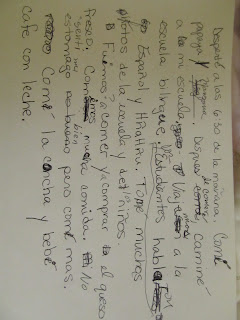 Desperté a las 6:30 de la mañana. Comí
papaya y Después de comer caminé
a la mi escuela. Viaj a la
escuela bilingüe. Estudiantes hablaron
Español y Tomé muchos
fotos de la escuela y del niños.
Fuimos a comer y a comprar el queso
fresco. Comimos mucha comida. No
sentí my
estómago bien pero comí mas.
Comí la concha y bebé
cafe con leche.